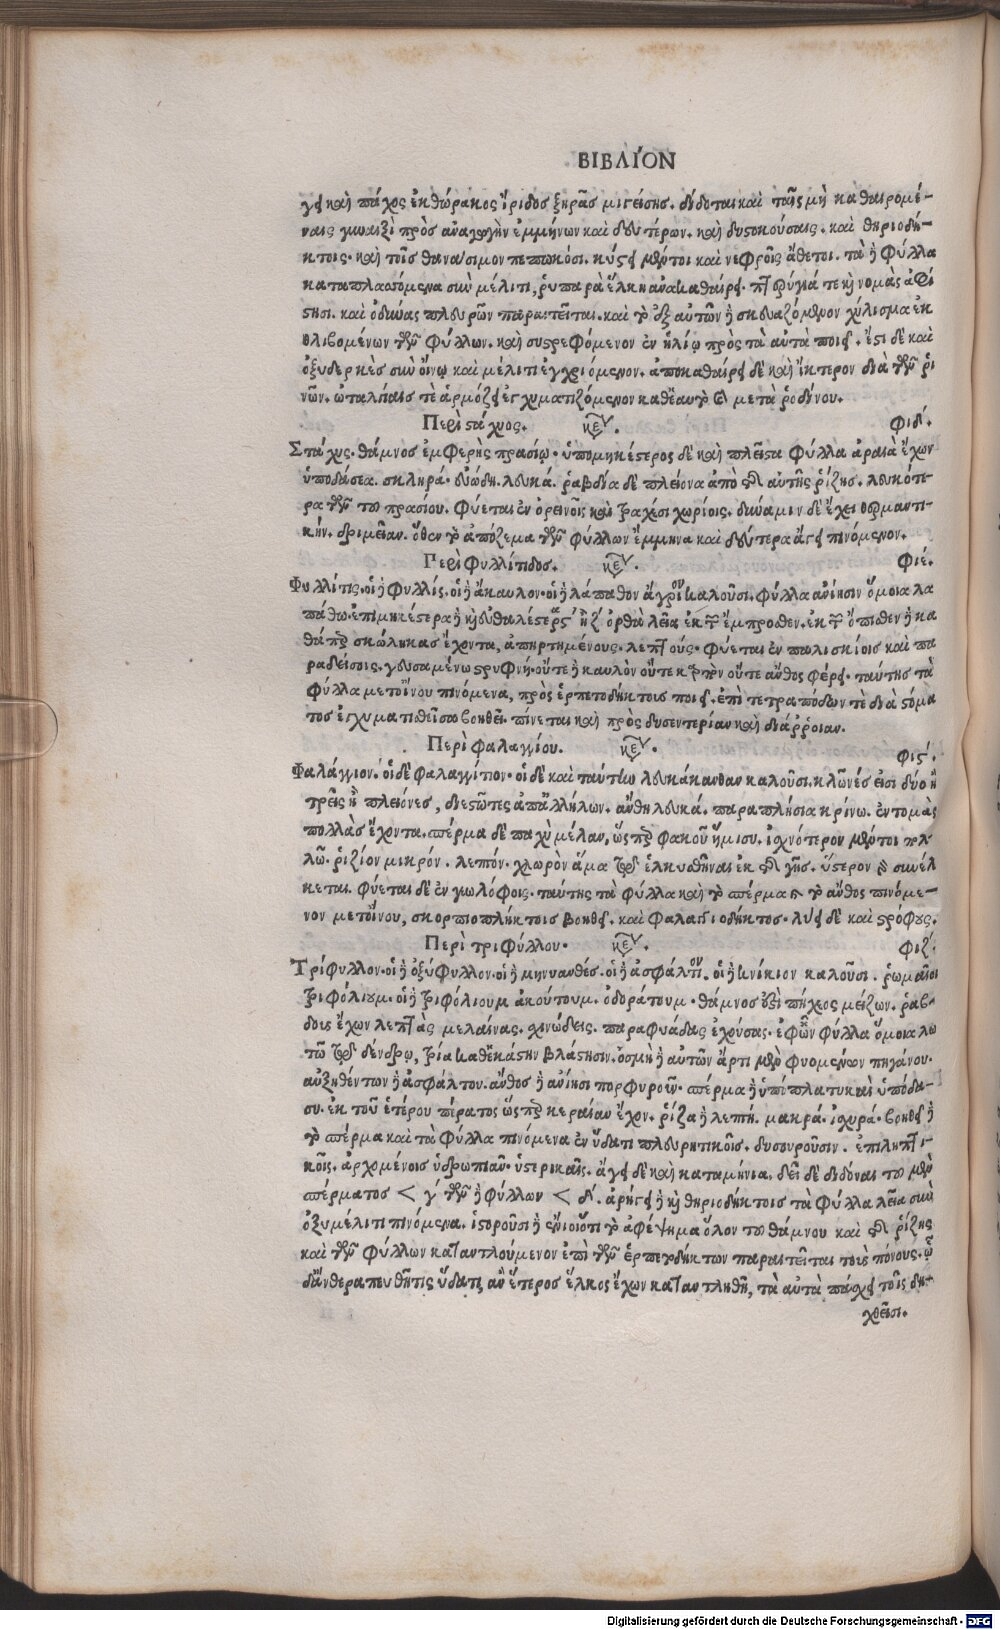 ΒΙΒΛΊΟΝ
γει καὶ πάχος ἐκ θώρακος ἴριδος ξηρᾶς μιγείσης. δίδοται καὶ ταῖς μὴ καθαιρομέ-
ναις γυναιξὶ πρὸς ἀναγωγὴν ἐμμήνων καὶ δευτέρων. καὶ δυστοκούσαις. καὶ θηριοδή-
κτοις. καὶ τοῖς θανάσιμον πεπωκόσι. κύστει μέντοι καὶ νεφροῖς ἄθετοι. τὰ δὲ φύλλα
καταπλασσόμενα σὺν μέλιτι, ῥυπαρὰ ἕλκη ἀνακαθαίρει. πτερύγιά τε καὶ νομὰς ἀφί
στησι. καὶ ὀδύνας πλευρῶν παραιτεῖται. καὶ τὸ ἐξ αὐτῶν δὲ σκευαζόμενον χύλισμα ἐκ
θλιβομένων τῶν φύλλων. καὶ συστρεφόμενον ἐν ἡλίῳ πρὸς τὰ αὐτὰ ποιεῖ. ἔστι δὲ καὶ
ὀξυδερκὲς σὺν οἴνῳ καὶ μέλιτι ἐγχριόμενον. ἀποκαθαίρει δὲ καὶ ἴκτερον διὰ τῶν ῥι
νῶν. ὠταλγίαις τὲ ἁρμόζει ἐγχυματιζόμενον καθ' ἑαυτὸ καὶ μετὰ ῥοδίνου.
Περὶ στάχυος. κεφ. φιδ.
Στάχυς. θάμνος ἐμφερὴς πρασίῳ. ὑπομηκέστερος δὲ καὶ πλεῖστα φύλλα ἀραιὰ ἔχων
ὑποδάσεα. σκληρά. εὐώδη. λευκά. ῥαβδία δὲ πλείονα ἀπὸ τῆς αὐτῆς ῥίζης. λευκότε-
ρα τῶν τοῦ πρασίου. φύεται ἐν ὀρεινοῖς καὶ τραχέσι χωρίοις. δύναμιν δὲ ἔχει θερμαντι-
κήν. δριμεῖαν. ὅθεν τὸ ἀπόζεμα τῶν φύλλων ἔμμηνα καὶ δεύτερα ἄγει πινόμενον.
Περὶ Φυλλίτιδος. κεφ. φιέ.
Φυλλίτις. οἱ δὲ φυλλίς. οἱ δὲ ἄκαυλον. οἱ δὲ λάπαθον ἄγριον καλοῦσι. φύλλα ἀνίησιν ὅμοια λα
πάθῳ. ἐπιμηκέστερα δὲ καὶ εὐθαλέστερα ἓξ ἢ ζ ὀρθὰ λεῖα ἐκ τῶν ἔμπροσθεν. ἐκ τῶν ὄπισθεν δὲ κα
θάπερ σκώληκας ἔχοντα, ἀπηρτημένους. λεπτούς. φύεται ἐν παλισκίοις καὶ πα
ραδείσοις. γευσαμένῳ στρυφνή. οὔτε δὲ καυλὸν οὔτε καρπὸν οὔτε ἄνθος φέρει. ταύτης τὰ
φύλλα μετ' οἴνου πινόμενα, πρὸς ἑρπετοδήκτους ποιεῖ. ἐπὶ τετραπόδων τὲ διὰ στόμα
τος ἐγχυματισθεῖσα βοηθεῖ. πίνεται καὶ πρὸς δυσεντερίαν καὶ διάῤῥοιαν.
Περὶ φαλαγγίου. κεφ. φιϛ.
Φαλάγγιον. οἱ δὲ φαλαγγίτιον. οἱ δὲ καὶ ταύτην λευκάκανθαν καλοῦσι. κλῶνές εἰσι δύο ἢ
τρεῖς ἢ πλείονες, διεστῶτες ἀπ' ἀλλήλων. ἄνθη λευκά. παραπλήσια κρίνῳ. ἐντομὰς
πολλὰς ἔχοντα. σπέρμα δὲ παχὺ μέλαν, ὥσπερ φακοῦ ἥμισυ. ἰσχνότερον μέντοι πολ
λῷ. ῥιζίον μικρόν. λεπτόν. χλωρὸν ἅμα τῷ ἑλκυσθῆναι ἐκ τῆς γῆς. ὕστερον γὰρ συνέλ
κεται. φύεται δὲ ἐν γεωλόφοις. ταύτης τὰ φύλλα καὶ τὸ σπέρμα καὶ τὸ ἄνθος πινόμε-
νον μετ' οἴνου, σκορπιοπλήκτοις βοηθεῖ. καὶ φαλαγγιοδήκτοις. λύει δὲ καὶ στρόφους.
Περὶ τριφύλλου. κεφ. φιζ.
Τρίφυλλον. οἱ δὲ ὀξύφυλλον. οἱ δὲ μηνυανθές. οἱ δὲ ἀσφάλτιον. οἱ δὲ κνίκιον καλοῦσι. ῥωμαῖοι
τριφόλιουμ. οἱ δὲ τριφόλιουμ ἀκούτουμ. ὀδοράτουμ. θάμνος ἐστὶ πήχεος μείζων. ῥάβ-
δους ἔχων λεπτὰς μελαίνας. σχινώδεις. παραφυάδας ἐχούσας. ἐφ' ὧν φύλλα ὅμοια λω
τῷ τῷ δένδρῳ, τρία καθ' ἑκάστην βλάστησιν. ὀσμὴ δὲ αὐτῶν ἄρτι μὲν φυομένων πηγάνου.
αὐξηθέντων δὲ ἀσφάλτου. ἄνθος δὲ ἀνίησι πορφυροῦν. σπέρμα δὲ ὑπόπλατυ καὶ ὑπόδα-
συ. ἐκ τοῦ ἑτέρου πέρατος ὥσπερ κεραίαν ἔχον. ῥίζα δὲ λεπτή. μακρά. ἰσχυρά. βοηθεῖ δὲ
τὸ σπέρμα καὶ τὰ φύλλα πινόμενα ἐν ὕδατι πλευριτικοῖς. δυσουροῦσιν. ἐπιληπτι-
κοῖς. ἀρχομένοις ὑδρωπιᾶν. ὑστερικαῖς. ἄγει δὲ καὶ καταμήνια. δεῖ δὲ διδόναι τοῦ μὲν
σπέρματος < γ' τῶν δὲ φύλλων < δ'. ἀρήγει δὲ καὶ θηριοδήκτοις τὰ φύλλα λεῖα σὺν
ὀξυμέλιτι πινόμενα. ἱστοροῦσι δὲ ἔνιοι ὅτι τὸ ἀφέψημα ὅλου τοῦ θάμνου καὶ τῆς ῥίζης
καὶ τῶν φύλλων καταντλούμενον ἐπὶ τῶν ἑρπετοδήκτων παραιτεῖται τοὺς πόνους. ᾧ
δ' ἂν θεραπευθῇ τις ὕδατι, ἂν ἕτερος ἕλκος ἔχων καταντληθῇ, τὰ αὐτὰ πάσχει τοῖς δη-
χθεῖσι.
Digitalisierung gefördert durch die Deutsche Forschungsgemeinschaft - DFG